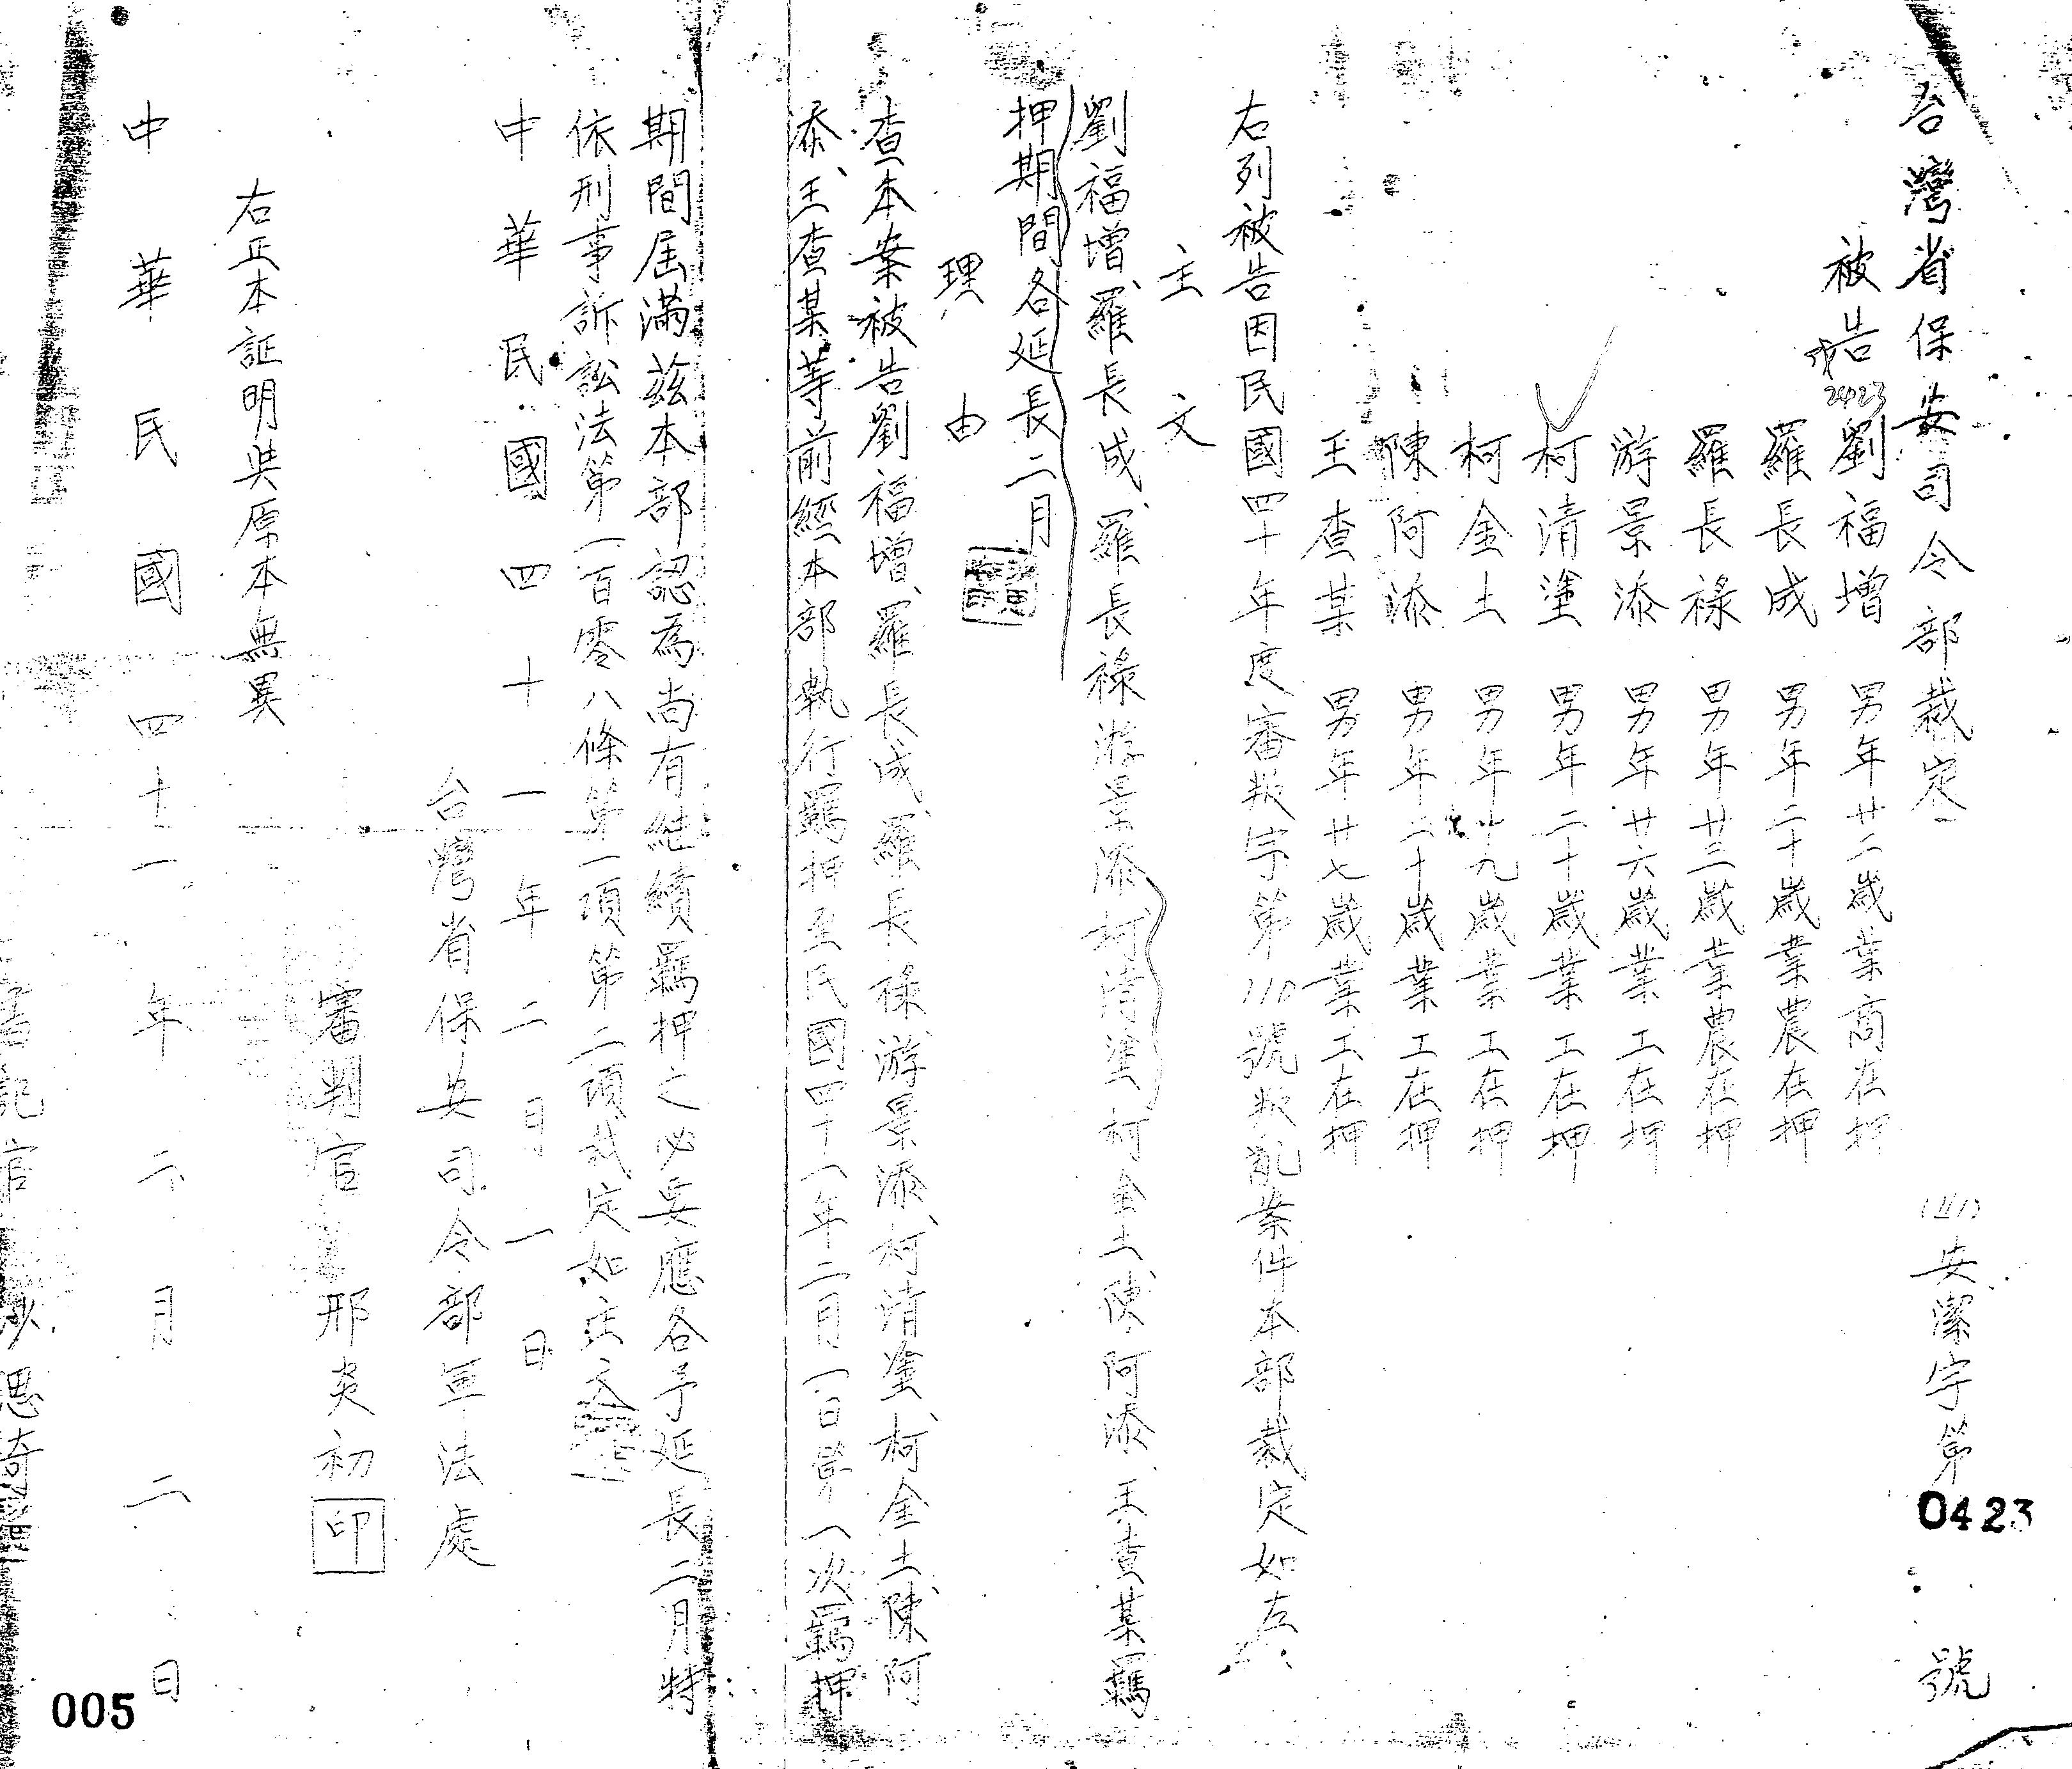 台灣省保安司令部裁定 (41)安潔字第0423號
被告 劉福增 男年廿二歲業商在押
2423
羅長成 男年二十歲業農在押
羅長祿 男年廿三歲業農在押
游景添 男年廿六歲業工在押
柯清塗 男年二十歲業工在押
柯金土 男年十九歲業工在押
陳阿添 男年二十歲業工在押
王查某 男年廿七歲業工在押
右列被告因民國四十年度審叛字第110號叛亂案件本部裁定如左:
主文
劉福增、羅長成、羅長祿游景添、柯清塗柯金土、陳阿添、王查某羈
押期間各延長二月
理由
查本案被告劉福增、羅長成、羅長祿、游景添、柯清塗、柯金土、陳阿
添、王查某等前經本部執行羈押至民國四十一年二月一日第一次羈押
期間屆滿茲本部認為尚有継續羈押之必要應各予延長二月特
依刑事訴訟法第一百零八條第一項第二項裁定如主文
中華民國四十一年二月一日
台灣省保安司令部軍法處
審判官 邢炎初 印
右正本証明與原本無異
中華民國四十一年二月二日
書記官
005